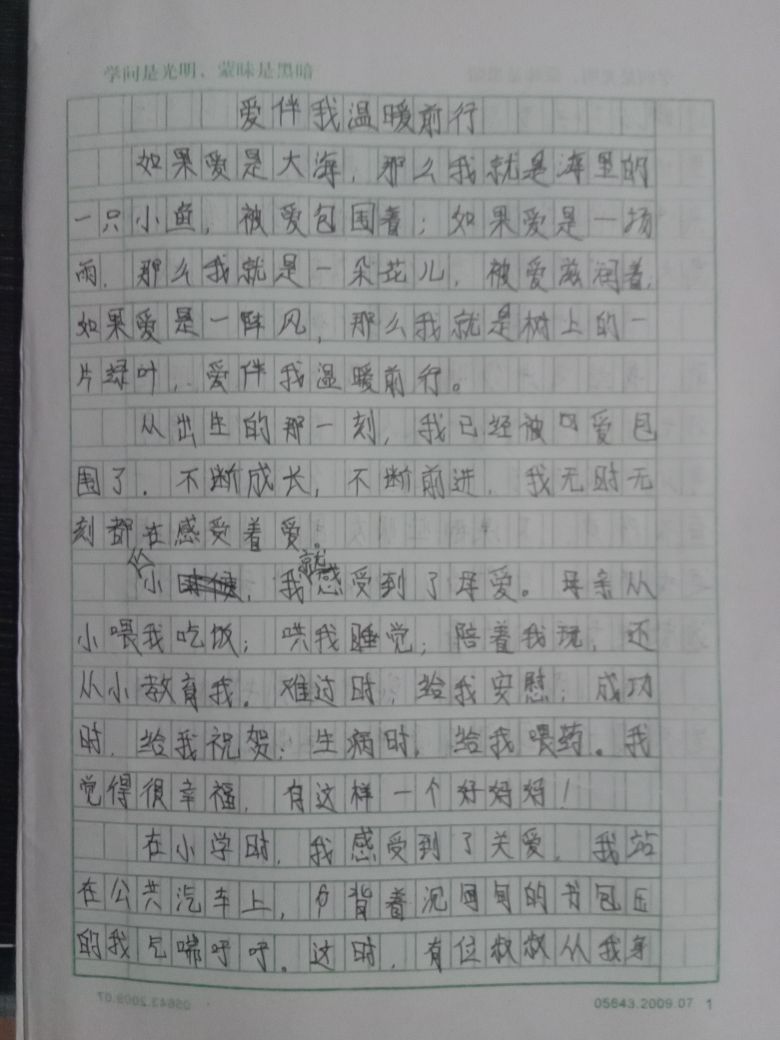 学问是光明，蒙昧是黑暗
爱伴我温暖前行
如果爱是大海，那么我就是海里的
一只小鱼，被爱包围着；如果爱是一场
雨，那么我就是一朵花儿，被爱滋润着，
如果爱是一阵风，那么我就是树上的一
片绿叶，爱伴我温暖前行。
从出生的那一刻，我已经被爱包
围了。不断成长，不断前进，我无时无
刻都在感受着爱。
从小，我就感受到了母爱。母亲从
小喂我吃饭；哄我睡觉；陪着我玩，还
从小教育我。难过时，给我安慰；成功
时，给我祝贺；生病时，给我喂药。我
觉得很幸福，有这样一个好妈妈！
在小学时，我感受到了关爱。我站
在公共汽车上，背着沉甸甸的书包压
的我气喘吁吁。这时，有位叔叔从我身
05643.2009.07 1